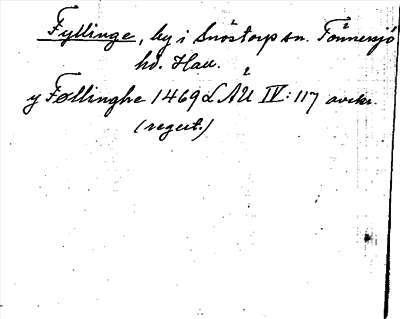 Fyllinge, by i Snöstorps sn. Tönnersjö
hd. Hall.
y Føllinghe 1469 LÅU IV:117 avskr.
(regest.)